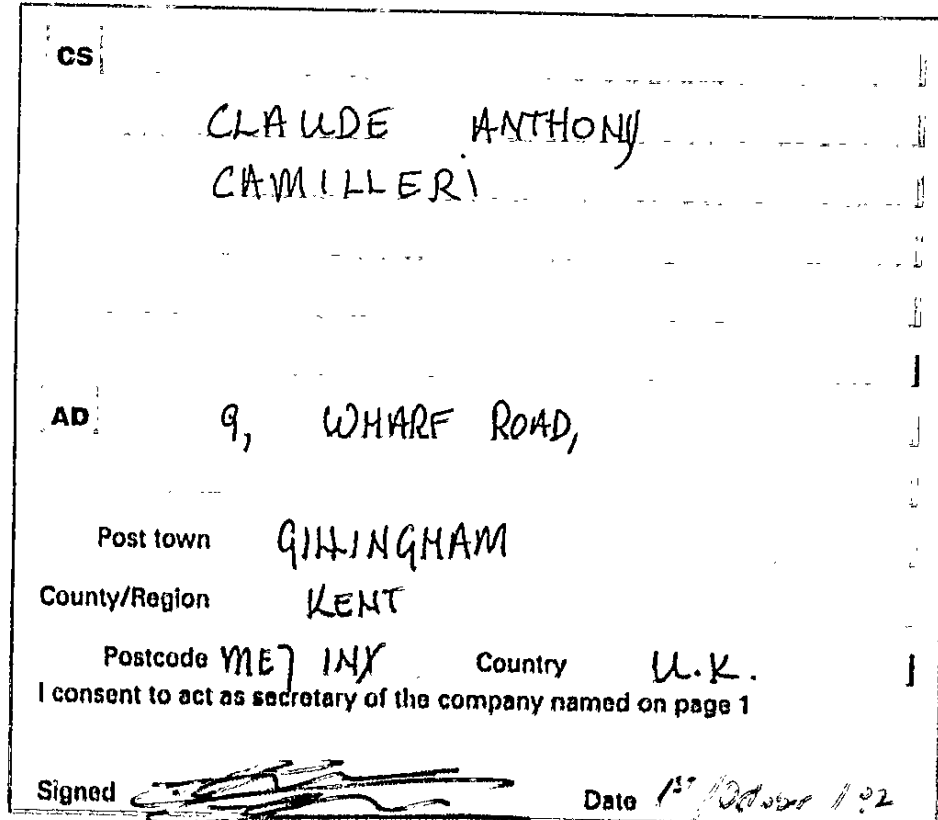 CS
CLAUDE ANTHONY
CAMILLERI
AD 9, WHARF ROAD,
Post town GILLINGHAM
County/Region KENT
Postcode ME7 1NX Country U.K.
I consent to act as secretary of the company named on page 1
Signed Date 1st / October /